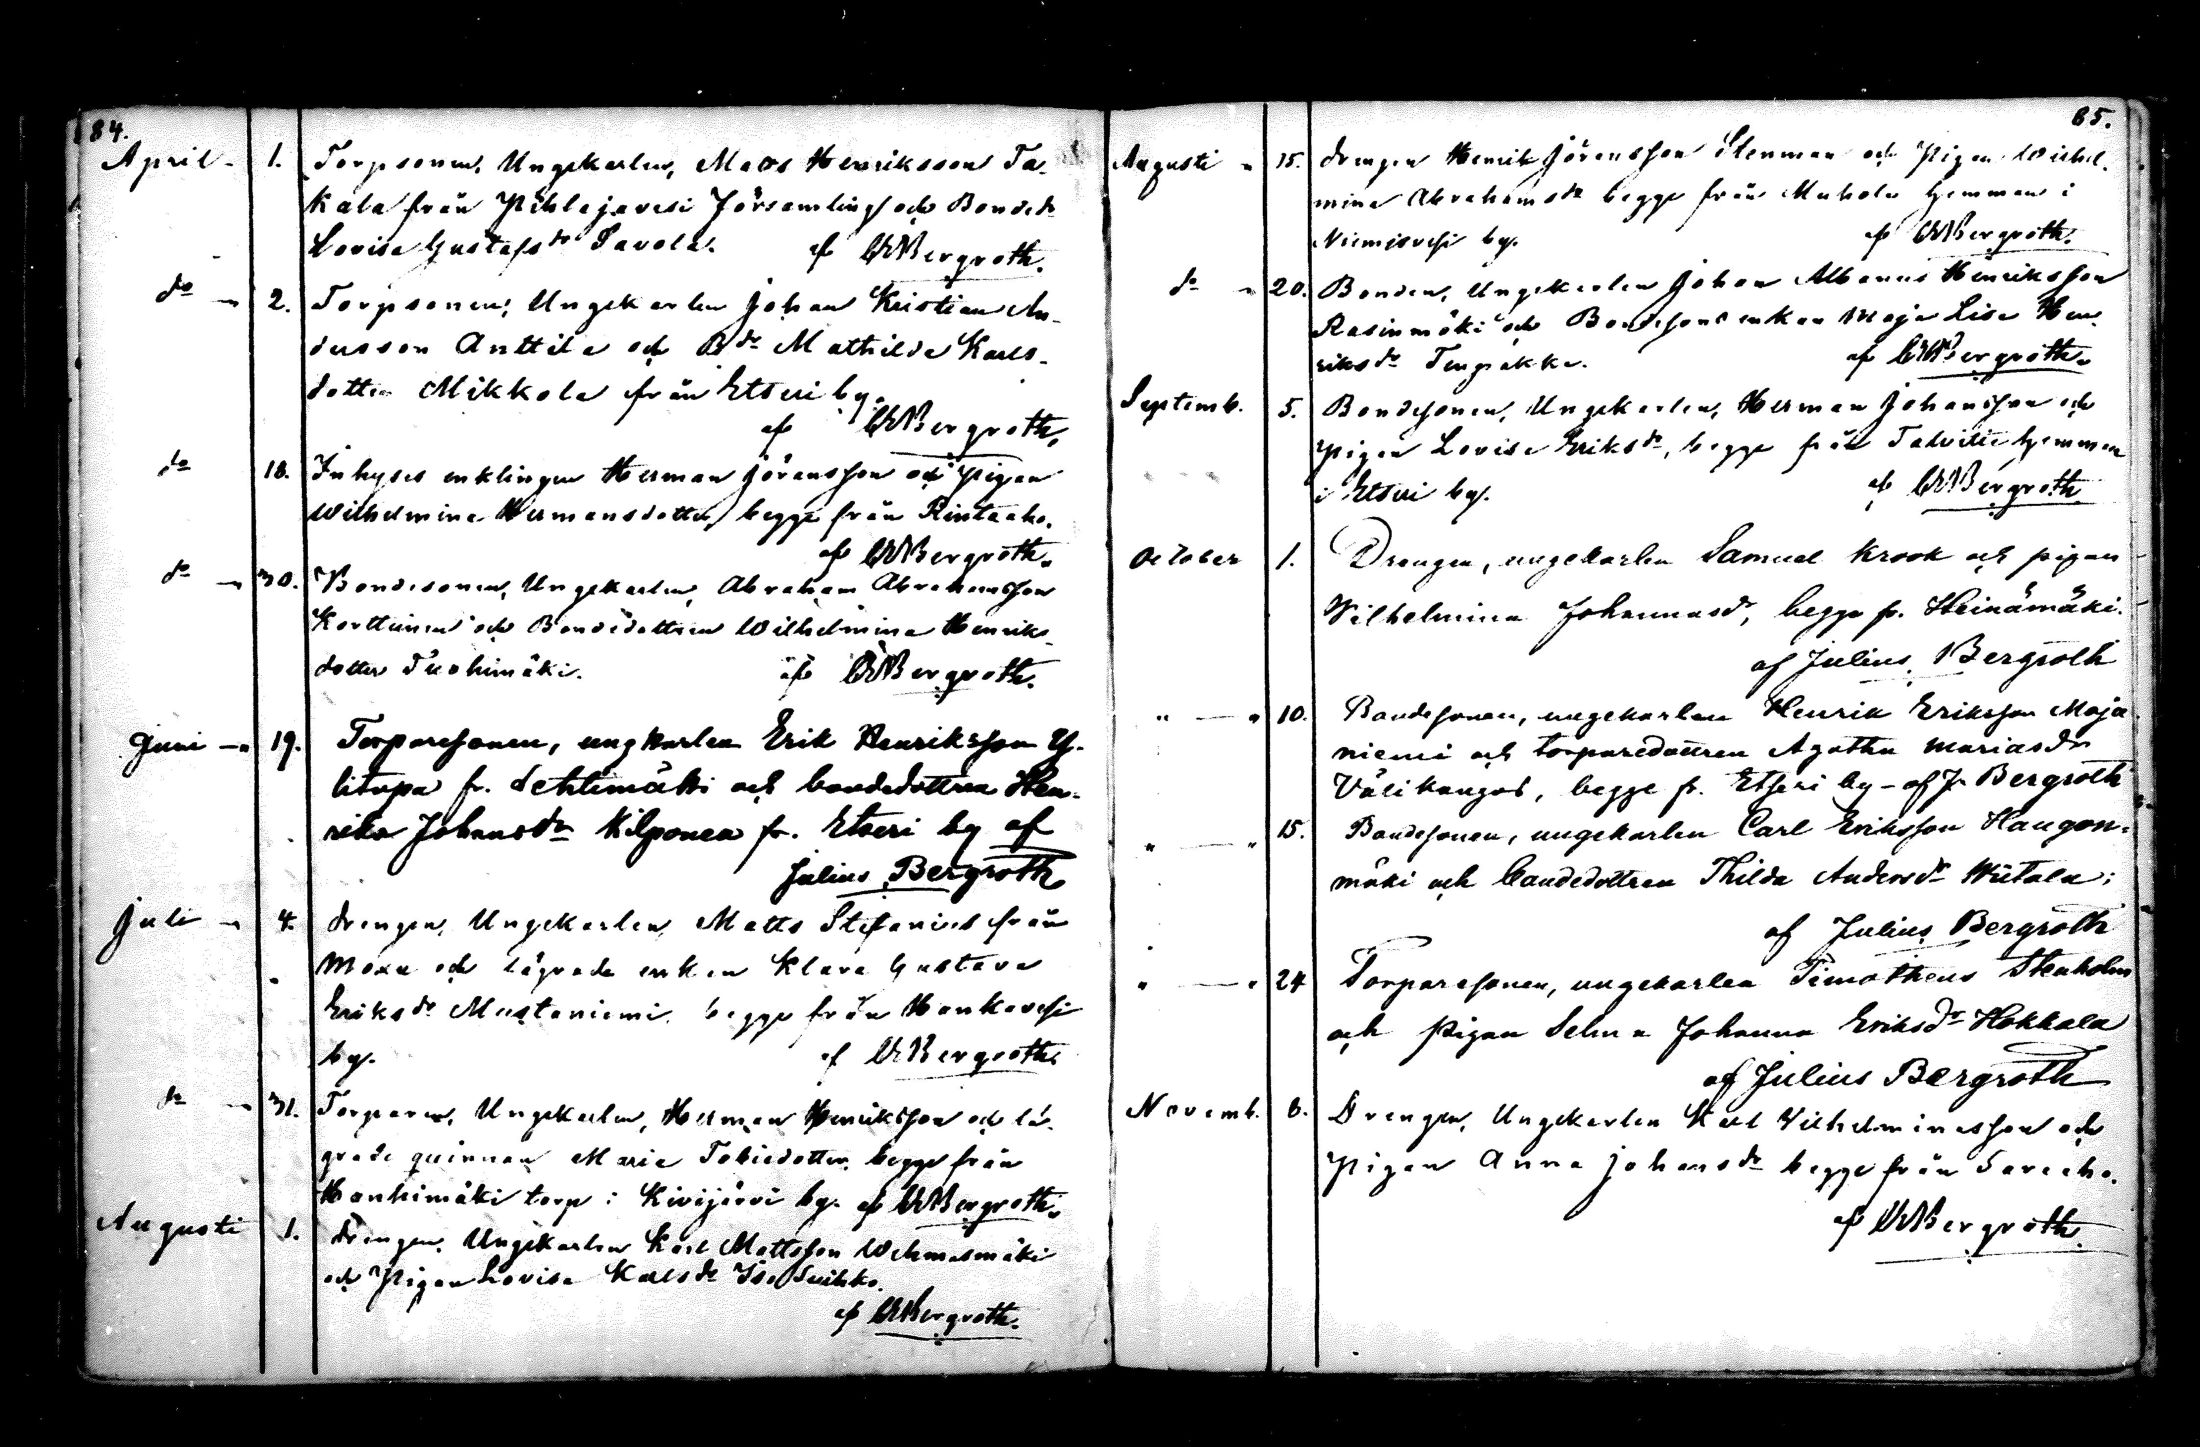 84.
April - 1. Torpsonen, Ungekarlen, Matts Henriksson Ta-
kala från Pihlajavesi församling och Bonded:r
Lovisa Gustafsd:r Savola. af CWBergroth.
d:o - 2. Torpsonen, Ungekarlen Johan Kristian An-
dersson Anttila och Bd:r Mathilda Karls-
dotter Mikkola från Etseri by.
af CWBergroth.
d:o 18. Inhyses enklingen Herman Jöransson och Pigan
Wilhelmina Hermansdotter, begge från Rintaaho.
af CWBergroth.
d:o - 30. Bondesonen, Ungekarlen, Abraham Abrahamsson
Korttinen och Bondedottren Wilhelmina Henriks-
dotter Tuohimäki. af CWBergroth.
Juni - 19. Torparesonen, ungkarlen Erik Henriksson Y-
litupa fr. Lehtimäki och bondedottren Hen-
rika Johansd:r Kilponen fr. Etseri by af
Julius Bergroth
Juli - 4. Drengen, Ungekarlen, Matts Stefanius från
Moxu och lägrade enkan Klara Gustava
Eriksd:r Mustaniemi, begge från Hankavesi
by. af CWBergroth.
d:o - 31. Torparen, Ungekarlen, Herman Henriksson och lä-
grade qvinnan Maria Tobiedotter, begge från
Hanhimäki torp i Kivijärvi by. af CWBergroth.
Augusti 1. Drengen, Ungekarlen Karl Mattsson Wehmasmäki
och Pigan Lovisa Karlsd:r Iso Suihko.
af CWBergroth.
85.
Augusti - 15. Drengen Henrik Jöransson Stenman och Pigan Wilhel-
mina Abrahamsd:r begge från Mahola hemman i
Niemisvesi by. af CWBergroth.
d:o - 20. Bonden, Ungekarlen Johan Albanus Henriksson
Rasinmäki och Bondesons enkan Maja Lisa Hen-
riksd:r af CWBergroth.
Septemb. 5. Bondesonen, Ungekarlen, Herman Johansson och
Pigan Lovisa Eriksd:r, begge från Talvitie hemman
i Etseri by. af CWBergroth
October 1. Drengen, ungekarlen Samuel Krook och pigan
Vilhelmina Johannasd:r, begge fr. Heinämäki.
af Julius Bergroth
" — " 10. Bondesonen, ungekarlen Henrik Eriksson Maja-
niemi och torparedottren Agatha Mariasd:r
Välikangas, begge fr. Etseri by - af J. Bergroth
" — " 15. Bondesonen, ungekarlen Carl Eriksson Haugon-
mäki och bondedottren Thilda Andersd:r Wiitala;
af Julius Bergroth
" — " 24 Torparesonen, ungekarlen Timotheus Stenholm
och Pigan Selma Johanna Eriksd:r Hokkala
af Julius Bergroth
Novemb. 6. Drengen, Ungekarlen Karl Vilhelminasson och
Pigan Anna Johansd:r begge från Saveaho.
af CWBergroth.